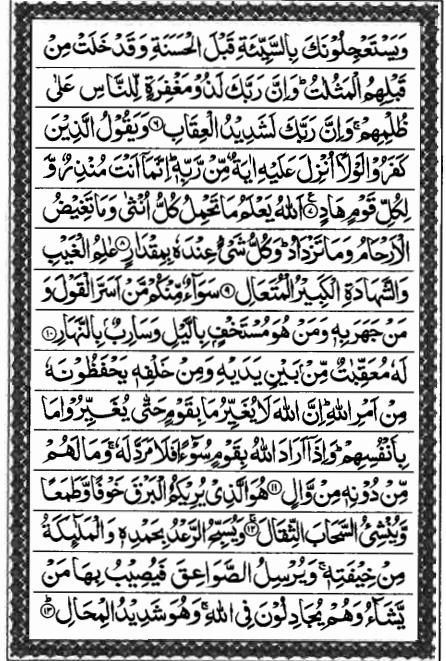 وَيَسْتَعْجِلُوْنَكَ بِالسَّيِّئَةِ قَبْلَ الْحَسَنَةِ وَقَدْ خَلَتْ مِنْ
قَبْلِهِمُ الْمَثُلٰتُ ؕ وَاِنَّ رَبَّكَ لَذُوْ مَغْفِرَةٍ لِّلنَّاسِ عَلٰى
ظُلْمِهِمْ ۚ وَاِنَّ رَبَّكَ لَشَدِيْدُ الْعِقَابِ ﴿۶﴾ وَيَقُوْلُ الَّذِيْنَ
كَفَرُوْا لَوْلَاۤ اُنْزِلَ عَلَيْهِ اٰيَةٌ مِّنْ رَّبِّهٖ ؕ اِنَّمَاۤ اَنْتَ مُنْذِرٌ وَّ
لِكُلِّ قَوْمٍ هَادٍ ﴿۷﴾ اَللّٰهُ يَعْلَمُ مَا تَحْمِلُ كُلُّ اُنْثٰى وَمَا تَغِيْضُ
الْاَرْحَامُ وَمَا تَزْدَادُ ؕ وَكُلُّ شَىْءٍ عِنْدَهٗ بِمِقْدَارٍ ﴿۸﴾ عٰلِمُ الْغَيْبِ
وَالشَّهَادَةِ الْكَبِيْرُ الْمُتَعَالِ ﴿۹﴾ سَوَآءٌ مِّنْكُمْ مَّنْ اَسَرَّ الْقَوْلَ وَ
مَنْ جَهَرَ بِهٖ وَمَنْ هُوَ مُسْتَخْفٍۭ بِالَّيْلِ وَسَارِبٌۢ بِالنَّهَارِ ﴿۱۰﴾
لَهٗ مُعَقِّبٰتٌ مِّنْۢ بَيْنِ يَدَيْهِ وَمِنْ خَلْفِهٖ يَحْفَظُوْنَهٗ
مِنْ اَمْرِ اللّٰهِ ؕ اِنَّ اللّٰهَ لَا يُغَيِّرُ مَا بِقَوْمٍ حَتّٰى يُغَيِّرُوْا مَا
بِاَنْفُسِهِمْ ؕ وَاِذَاۤ اَرَادَ اللّٰهُ بِقَوْمٍ سُوْٓءًا فَلَا مَرَدَّ لَهٗ ۚ وَمَا لَهُمْ
مِّنْ دُوْنِهٖ مِنْ وَّالٍ ﴿۱۱﴾ هُوَ الَّذِىْ يُرِيْكُمُ الْبَرْقَ خَوْفًا وَّطَمَعًا
وَّيُنْشِئُ السَّحَابَ الثِّقَالَ ﴿۱۲﴾ وَيُسَبِّحُ الرَّعْدُ بِحَمْدِهٖ وَالْمَلٰٓئِكَةُ
مِنْ خِيْفَتِهٖ ۚ وَيُرْسِلُ الصَّوَاعِقَ فَيُصِيْبُ بِهَا مَنْ
يَّشَآءُ وَهُمْ يُجَادِلُوْنَ فِى اللّٰهِ ۚ وَهُوَ شَدِيْدُ الْمِحَالِ ﴿۱۳﴾